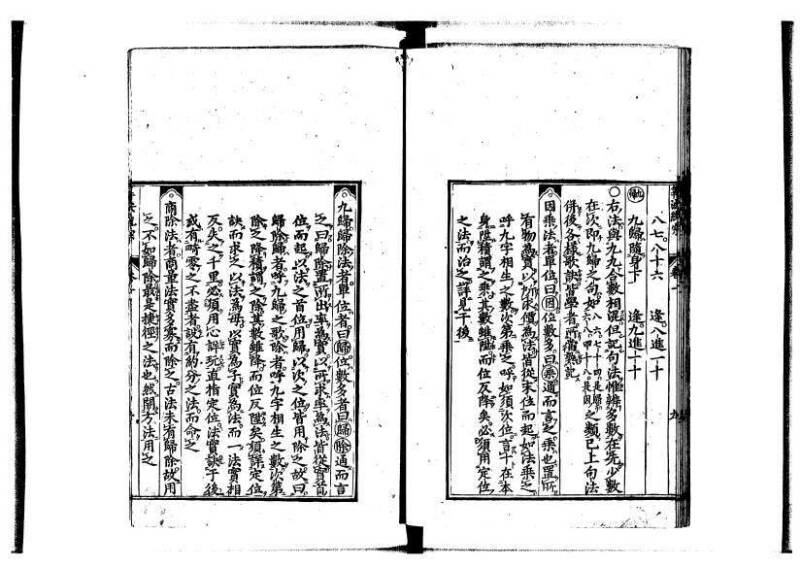 八七八十六　逢八進一十
九歸　九歸隨身下　逢九進一十
○右法與九九合數相混但記句法惟緯多數在先少數
在次即九歸之句如六八七十四是歸八六四十八是因之類已上句法
併後各樣歌訣皆學者所當熟記
因乘法者單位曰因位數多曰乘通而言之乘也置所
有物為實以所求價為法皆從末位而起如法乘之
呼九字相生之數次第乘之呼如須次位言十在本
身陞積謂之乘其數雖陞而位反降矣必須用定位
之法而治之詳見于後
九歸歸除法者單位者曰歸位數多者曰歸除通而言
之曰歸除置所出率為實以所求率為法皆從首
位而起以法之首位用歸以次之位皆用除之故曰
歸除歸者呼九歸之歌除者呼九字相生之數次第
除之降積謂之除其數雖降而位反陞矣須詳定位
訣而求之以法為母以實為子實為法而一法實相
反失之千里必須用心詳玩直指定位法實訣于後
或有畸零之不盡者設有約分之法而命之
商除法者商量法實多寡而除之古法未有歸除故用
之不如歸除最是捷徑之法也然開方法用之